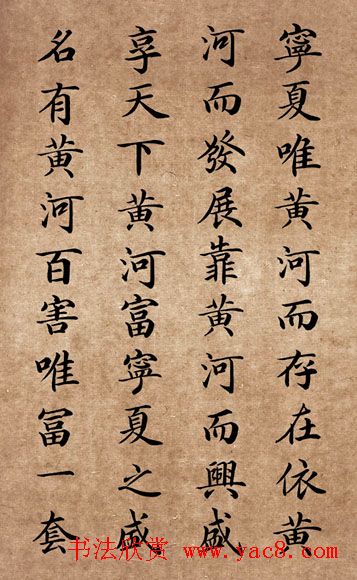 寧夏唯黄河而存在依黄
河而發展靠黄河而興盛
享天下黄河富寧夏之盛
名有黄河百害唯冨一套
书法欣赏 www.yac8.com